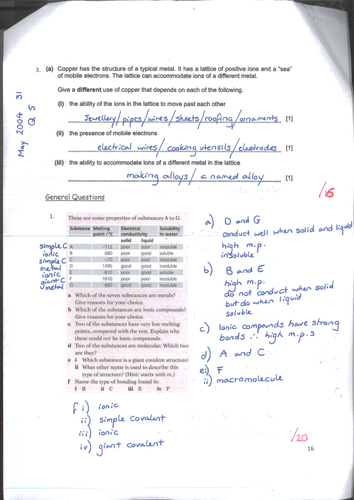 May 2004 31
Q 5
3. (a) Copper has the structure of a typical metal. It has a lattice of positive ions and a "sea"
of mobile electrons. The lattice can accommodate ions of a different metal.
Give a different use of copper that depends on each of the following.
(i) the ability of the ions in the lattice to move past each other
Jewellery/pipes/wires/sheets/roofing/ornaments [1]
(ii) the presence of mobile electrons
electrical wires/ cooking utensils/ electrodes [1]
(iii) the ability to accommodate ions of a different metal in the lattice
making alloys/ a named alloy [1]
/16
General Questions
1. These are some properties of substances A to G.
Substance Melting point /°C Electrical conductivity Solubility in water
solid liquid
simple C A -112 poor poor insoluble
ionic B 680 poor good soluble
simple C C -70 poor poor insoluble
metal D 1495 good good insoluble
ionic E 610 poor good soluble
giant C F 1610 poor poor insoluble
metal G 660 good good insoluble
a Which of the seven substances are metals?
Give reasons for your choice.
b Which of the substances are ionic compounds?
Give reasons for your choice.
c Two of the substances have very low melting
points, compared with the rest. Explain why
these could not be ionic compounds.
d Two of the substances are molecular. Which two
are they?
e i Which substance is a giant covalent structure?
ii What other name is used to describe this
type of structure? (Hint: starts with m.)
f Name the type of bonding found in:
i B ii C iii E iv F
a) D and G
conduct well when solid and liquid
high m.p.
insoluble
b) B and E
high m.p.
do not conduct when solid
but do when liquid
soluble
c) Ionic compounds have strong
bonds ∴ high m.p.s
d) A and C
ei) F
ii) macromolecule
f i) ionic
ii) simple covalent
iii) ionic
iv) giant covalent
/20
16